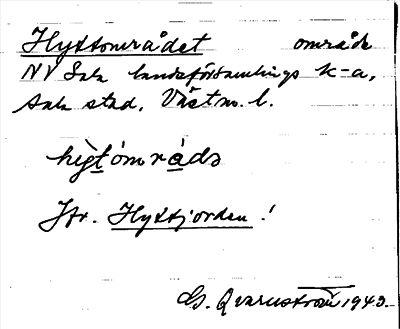 Hyttområdet område
NV Sala landsförsamlings k-a,
Sala stad, Västm. l.
hỳtọ́mrádə
Jfr. Hyttjorden!
G. Qvarnström 1943.